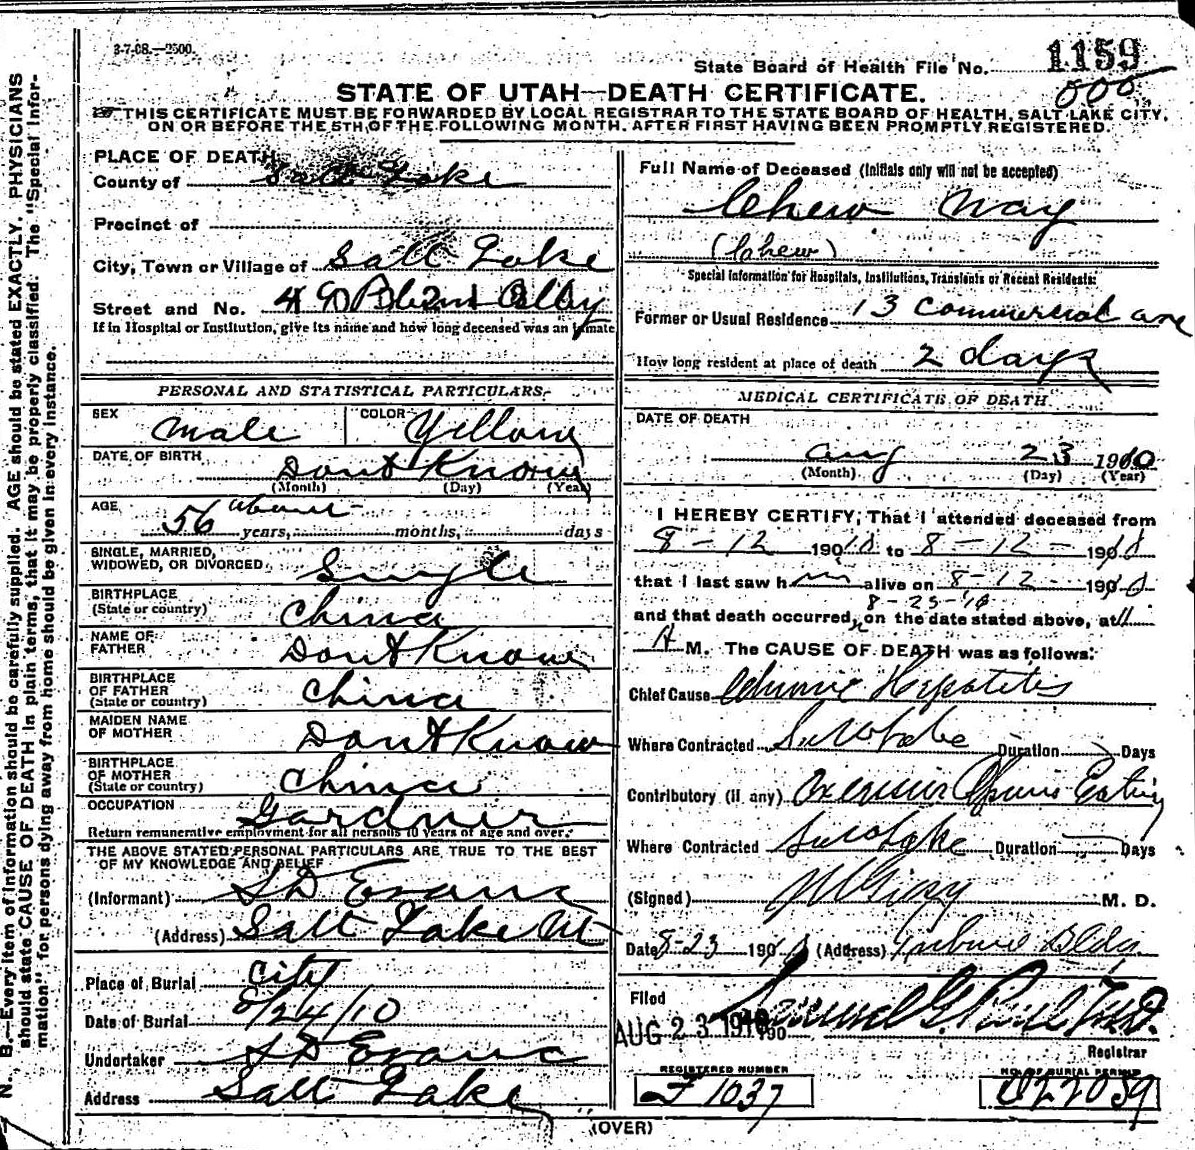 3-7-08.—2500.
State Board of Health File No. 1159
000
STATE OF UTAH—DEATH CERTIFICATE.
THIS CERTIFICATE MUST BE FORWARDED BY LOCAL REGISTRAR TO THE STATE BOARD OF HEALTH, SALT LAKE CITY,
ON OR BEFORE THE 5TH, OF THE FOLLOWING MONTH. AFTER FIRST HAVING BEEN PROMPTLY REGISTERED.
N. B.—Every item of information should be carefully supplied. AGE should be stated EXACTLY. PHYSICIANS
should state CAUSE OF DEATH in plain terms, that it may be properly classified. The "Special Infor-
mation" for persons dying away from home should be given in every instance.
PLACE OF DEATH
County of Salt Lake
Precinct of
City, Town or Village of Salt Lake
Street and No.
If in Hospital or Institution, give its name and how long deceased was an inmate
PERSONAL AND STATISTICAL PARTICULARS.
SEX Male COLOR Yellow
DATE OF BIRTH Dont Know
(Month) (Day) (Year)
AGE about
56 years, months, days
SINGLE, MARRIED,
WIDOWED, OR DIVORCED Single
BIRTHPLACE
(State or country) China
NAME OF
FATHER Dont Know
BIRTHPLACE
OF FATHER
(State or country) China
MAIDEN NAME
OF MOTHER Dont Know
BIRTHPLACE
OF MOTHER
(State or country) China
OCCUPATION Gardner
Return remunerative employment for all persons 10 years of age and over.
THE ABOVE STATED PERSONAL PARTICULARS ARE TRUE TO THE BEST
OF MY KNOWLEDGE AND BELIEF
(Informant) S D Evans
(Address) Salt Lake Ut
Place of Burial City
Date of Burial 8/24/10
Undertaker S D Evans
Address Salt Lake
Full Name of Deceased (Initials only will not be accepted)
Chew Way
(Chew)
Special Information for Hospitals, Institutions, Transients or Recent Residents:
Former or Usual Residence 13 Commercial ave
How long resident at place of death 2 days
MEDICAL CERTIFICATE OF DEATH
DATE OF DEATH
Aug 23 1910
(Month) (Day) (Year)
I HEREBY CERTIFY, That I attended deceased from
8-12 1910 to 8-12- 1910
that I last saw him alive on 8-12- 1910
8-23-10
and that death occurred, on the date stated above, at 11
A M. The CAUSE OF DEATH was as follows:
Chief Cause Chronic Hepatitis
Where Contracted Salt Lake Duration Days
Contributory (if any) Excessive Opium Eating
Where Contracted Salt Lake Duration Days
(Signed) M. D.
Date 8-23 1910 (Address) Tribune Bldg.
Filed
AUG 23 1910 190 Samuel G. Paul M.D.
Registrar
REGISTERED NUMBER
F 1037
NO. OF BURIAL PERMIT
022059
(OVER)